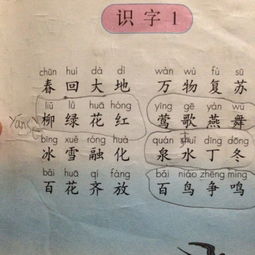 识字1
chūn huí dà dì wàn wù fù sū
春回大地 万物复苏
liǔ lǜ huā hóng yīng gē yàn wǔ
柳绿花红 莺歌燕舞
bīng xuě róng huà quán shuǐ dīng dōng
冰雪融化 泉水丁冬
bǎi huā qí fàng bǎi niǎo zhēng míng
百花齐放 百鸟争鸣